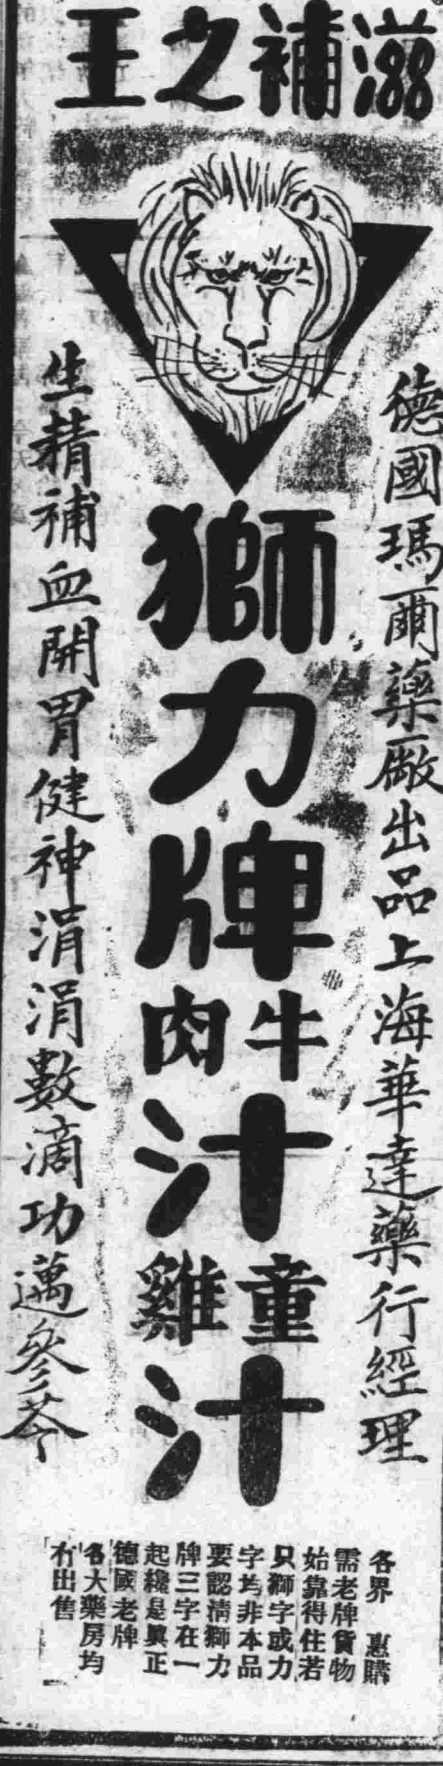 滋補之王
德國瑪爾藥廠出品上海華達藥行經理
獅力牌
牛肉汁
童雞汁
生精補血開胃健神涓涓數滴功邁參苓
各界　惠購
需老牌貨物
始靠得住若
只獅字或力
字均非本品
要認清獅力
牌三字在一
起纔是眞正
德國老牌
各大藥房均
有出售